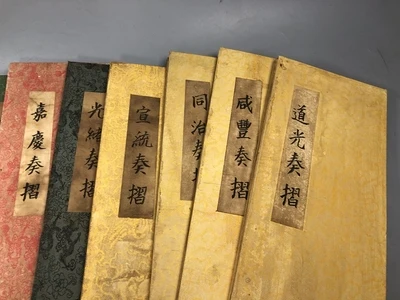 嘉慶奏摺
光緒奏摺
宣統奏摺
同治奏
咸豐奏摺
道光奏摺